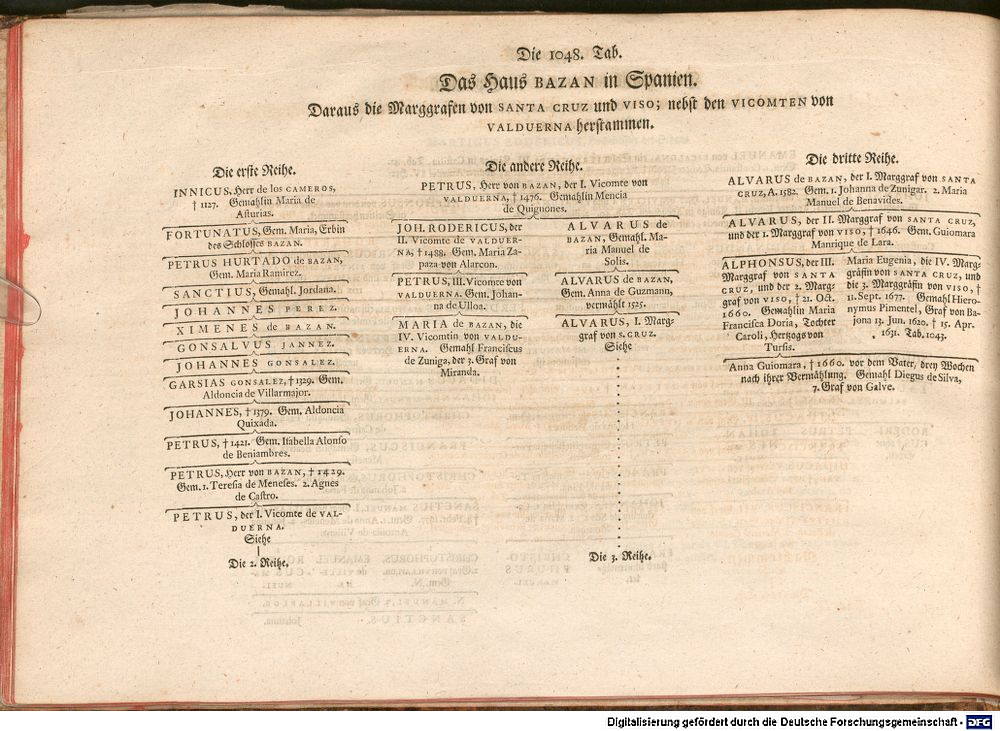 Die 1048. Tab.
Das Haus BAZAN in Spanien.
Daraus die Marggrafen von SANTA CRUZ und VISO; nebst den VICOMTEN von
VALDUERNA herstammen.
Die erste Reihe.
INNICUS, Herr de los CAMEROS,
† 1127. Gemahlin Maria de
Asturias.
FORTUNATUS, Gem. Maria, Erbin
des Schlosses BAZAN.
PETRUS HURTADO de BAZAN,
Gem. Maria Ramirez.
SANCTIUS, Gemahl. Jordana.
JOHANNES PEREZ.
XIMENES de BAZAN.
GONSALVUS JANNEZ.
JOHANNES GONSALEZ.
GARSIAS GONSALEZ, † 1329. Gem.
Aldoncia de Villarmajor.
JOHANNES, † 1379. Gem. Aldoncia
Quixada.
PETRUS, † 1421. Gem. Isabella Alonso
de Beniambres.
PETRUS, Herr von BAZAN, † 1429.
Gem. 1. Teresia de Meneses. 2. Agnes
de Castro.
PETRUS, der I. Vicomte de VAL-
DUERNA.
Siehe
Die 2. Reihe.
Die andere Reihe.
PETRUS, Herr von BAZAN, der I. Vicomte von
VALDUERNA, † 1476. Gemahlin Mencia
de Quignones.
JOH. RODERICUS, der
II. Vicomte de VALDUER-
NA, † 1488. Gem. Maria Za-
paza von Alarcon.
PETRUS, III. Vicomte von
VALDUERNA. Gem. Johan-
na de Ulloa.
MARIA de BAZAN, die
IV. Vicomtin von VALDU-
ERNA. Gemahl Franciscus
de Zuniga, der 3. Graf von
Miranda.
ALVARUS de
BAZAN, Gemahl. Ma-
ria Manuel de
Solis.
ALVARUS de BAZAN,
Gem. Anna de Guzmann,
vermählt 1525.
ALVARUS, I. Marg-
graf von S. CRUZ.
Siehe
Die 3. Reihe.
Die dritte Reihe.
ALVARUS de BAZAN, der I. Marggraf von SANTA
CRUZ, A. 1582. Gem. 1. Johanna de Zunigar. 2. Maria
Manuel de Benavides.
ALVARUS, der II. Marggraf von SANTA CRUZ,
und der 1. Marggraf von VISO, † 1646. Gem. Guiomara
Manrique de Lara.
ALPHONSUS, der III.
Marggraf von SANTA
CRUZ, und der 2. Marg-
graf von VISO, † 21. Oct.
1660. Gemahlin Maria
Francisca Doria, Tochter
Caroli, Hertzogs von
Tursis.
Maria Eugenia, die IV. Marg-
gräfin von SANTA CRUZ, und
die 3. Marggräfin von VISO, †
11. Sept. 1677. Gemahl Hiero-
nymus Pimentel, Graf von Ba-
jona 13. Jun. 1620. † 15. Apr.
1631. Tab. 1043.
Anna Guiomara, † 1660. vor dem Vater, drey Wochen
nach ihrer Vermählung. Gemahl Diegus de Silva,
7. Graf von Galve.
Digitalisierung gefördert durch die Deutsche Forschungsgemeinschaft - DFG